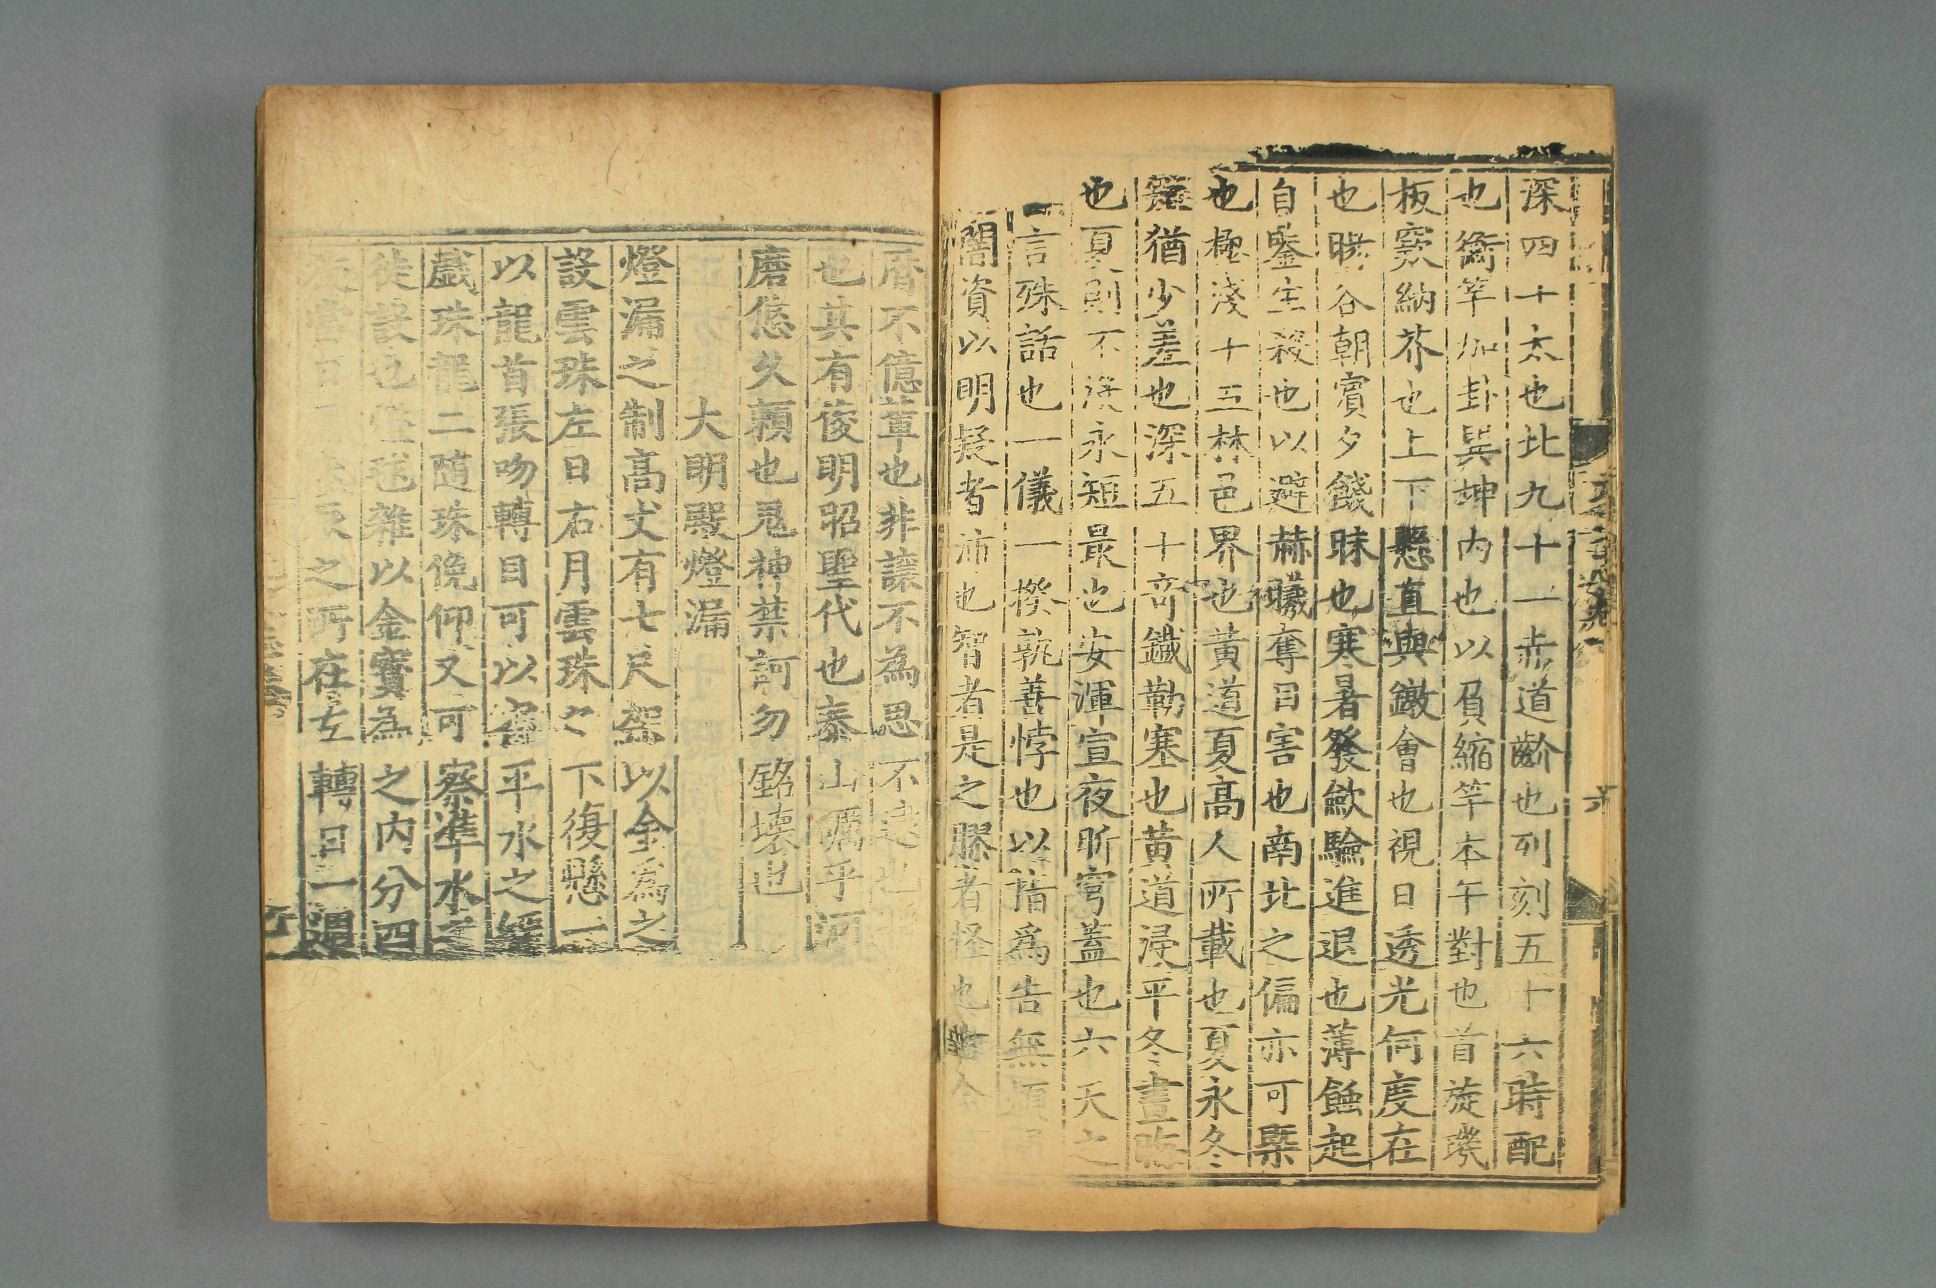 深四十太也北九十一赤道齡也列刻五十六時配
也衡竿加卦巽坤内也以負縮竿本午對也首旋璣
板窾納芥也上下懸直與鐓會也視日透光何度在
也暘谷朝賓夕餞昧也寒暑發歛驗進退也薄蝕起
自鑒生殺也以避赫曦奪目害也南北之偏亦可槩
也極淺十五林邑界也黃道夏高人所載也夏永冬
短猶少差也深五十奇鐵勒塞也黃道浸平冬晝晦
也夏則不没永短最也安渾宣夜昕穹蓋也六天之
言殊話也一儀一揆孰善悖也以指爲告無煩
闇資以明疑者沛也智者是之膠者怪也
曆不億輩也非讓不為思不逮也
也其有俊明昭聖代也泰山礪乎河
磨悠久賴也鬼神禁訶勿銘壞也
大明殿燈漏
燈漏之制高丈有七尺架以金為之
設雲珠左日右月雲珠之下復懸一
以龍首張吻轉目可以審平水之緩
戲珠龍二隨珠俛仰又可察準水之
徒設也燈毬雜以金寶為之内分四
辰之所在左轉日一週